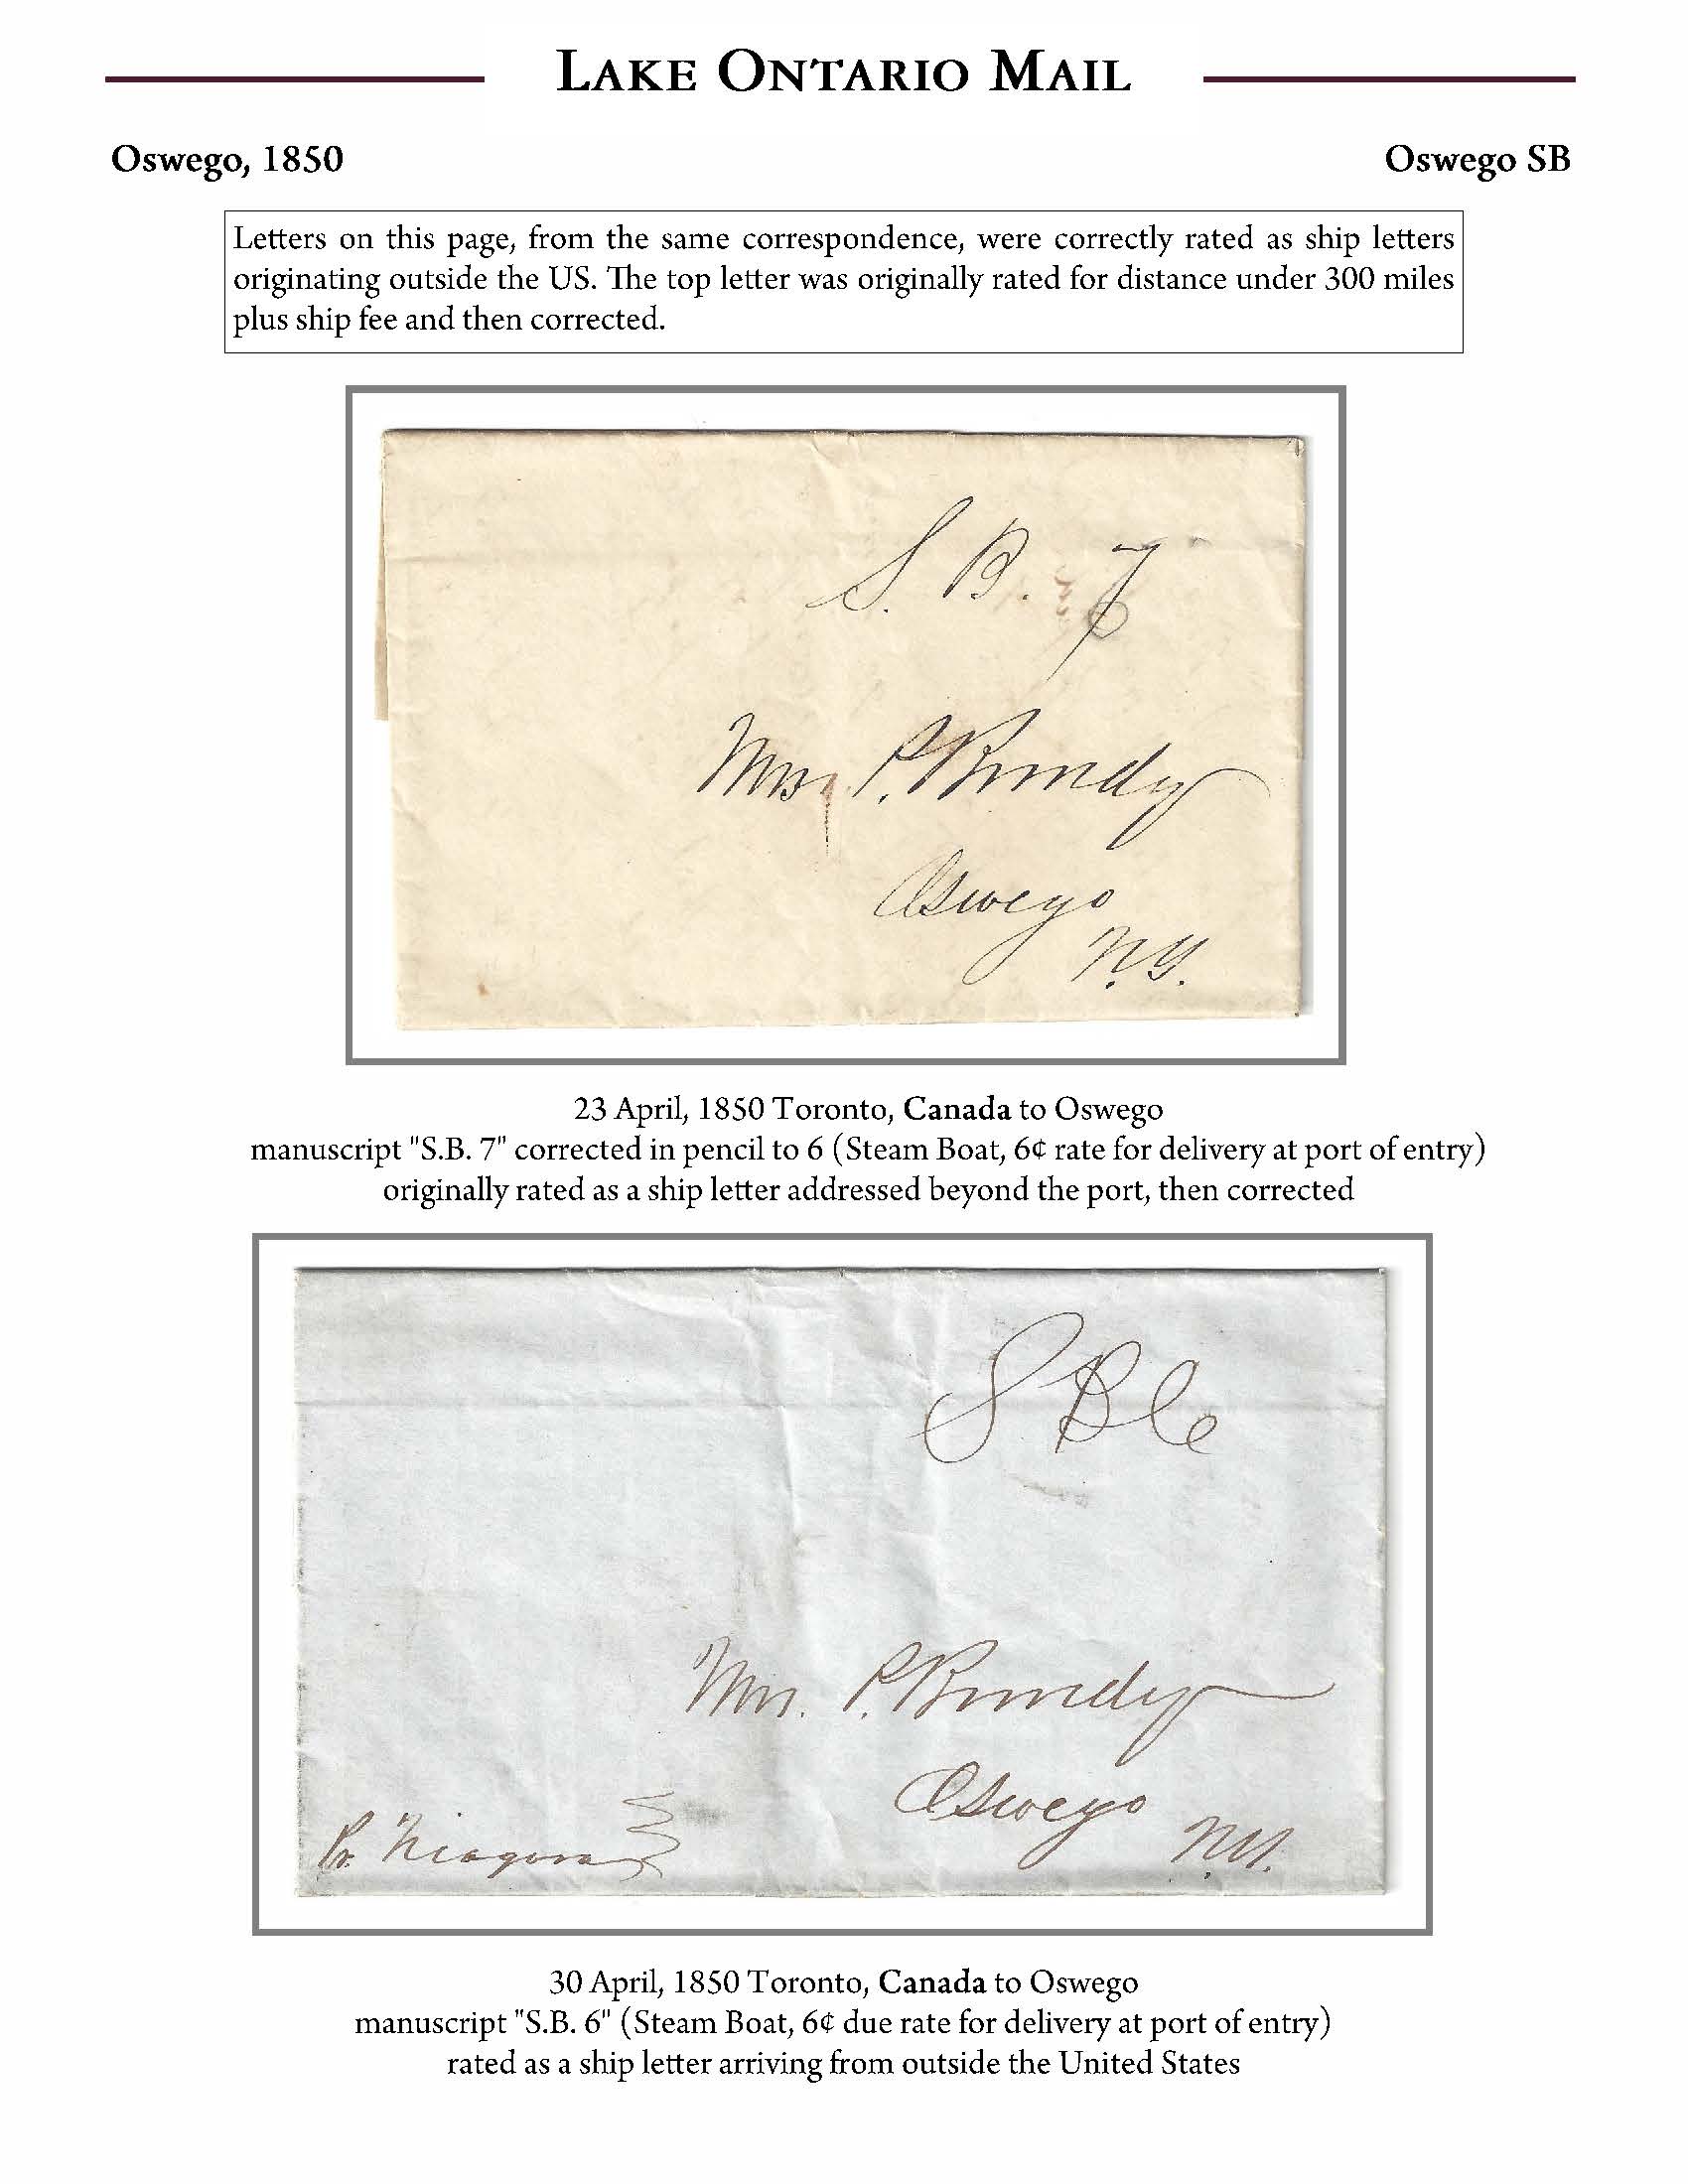 LAKE ONTARIO MAIL
Oswego, 1850
Oswego SB
Letters on this page, from the same correspondence, were correctly rated as ship letters
originating outside the US. The top letter was originally rated for distance under 300 miles
plus ship fee and then corrected.
S. B. 7
6
Mrs. P. Bundy
Oswego
N.Y.
23 April, 1850 Toronto, Canada to Oswego
manuscript "S.B. 7" corrected in pencil to 6 (Steam Boat, 6¢ rate for delivery at port of entry)
originally rated as a ship letter addressed beyond the port, then corrected
S B 6
Mrs. P. Bundy
Oswego
N.Y.
Pr. Niagara
30 April, 1850 Toronto, Canada to Oswego
manuscript "S.B. 6" (Steam Boat, 6¢ due rate for delivery at port of entry)
rated as a ship letter arriving from outside the United States